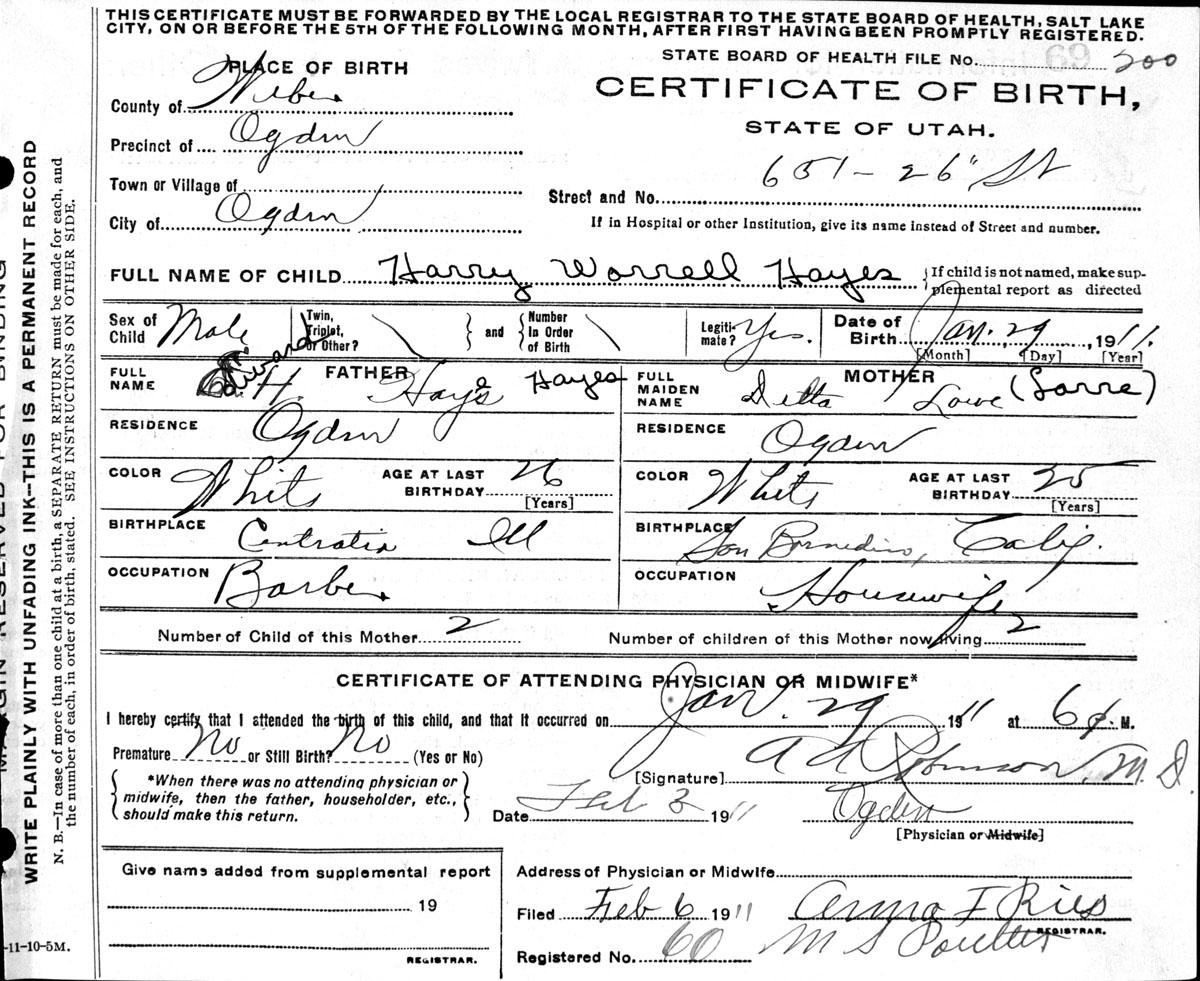 THIS CERTIFICATE MUST BE FORWARDED BY THE LOCAL REGISTRAR TO THE STATE BOARD OF HEALTH, SALT LAKE
CITY, ON OR BEFORE THE 5TH OF THE FOLLOWING MONTH, AFTER FIRST HAVING BEEN PROMPTLY REGISTERED.
STATE BOARD OF HEALTH FILE No. 200
PLACE OF BIRTH
CERTIFICATE OF BIRTH,
STATE OF UTAH.
County of Weber
Precinct of Ogden
Town or Village of
City of Ogden
651 - 26" St
Street and No.
If in Hospital or other Institution, give its name instead of Street and number.
FULL NAME OF CHILD Harry Worrell Hayes {If child is not named, make sup-
plemental report as directed
Sex of Child Male Twin, Triplet, or Other? } and { Number In Order of Birth Legiti-mate? Yes. Date of Birth Jan. 29, 1911.
[Month] [Day] [Year]
FATHER
FULL NAME Edward H. Hays Hayes
MOTHER
FULL MAIDEN NAME Detta Lowe (Larre)
RESIDENCE Ogden
RESIDENCE Ogden
COLOR White AGE AT LAST BIRTHDAY 26 [Years]
COLOR White AGE AT LAST BIRTHDAY 25 [Years]
BIRTHPLACE Centralia Ill
BIRTHPLACE San Bernedino, Calif.
OCCUPATION Barber
OCCUPATION Housewife
Number of Child of this Mother 2 Number of children of this Mother now living 2
CERTIFICATE OF ATTENDING PHYSICIAN OR MIDWIFE*
I hereby certify that I attended the birth of this child, and that it occurred on Jan. 29 1911 at 6 P. M.
Premature No or Still Birth? No (Yes or No)
*When there was no attending physician or
midwife, then the father, householder, etc.,
should make this return.
[Signature] A A Robinson, M.D.
Date Feb 3 1911 Ogden
[Physician or Midwife]
Give name added from supplemental report
19
REGISTRAR.
Address of Physician or Midwife
Filed Feb 6 1911
REGISTRAR.
Registered No. 60 M S Poulter
WRITE PLAINLY WITH UNFADING INK--THIS IS A PERMANENT RECORD
N. B.—In case of more than one child at a birth, a SEPARATE RETURN must be made for each, and
the number of each, in order of birth, stated. SEE INSTRUCTIONS ON OTHER SIDE.
-11-10-5M.